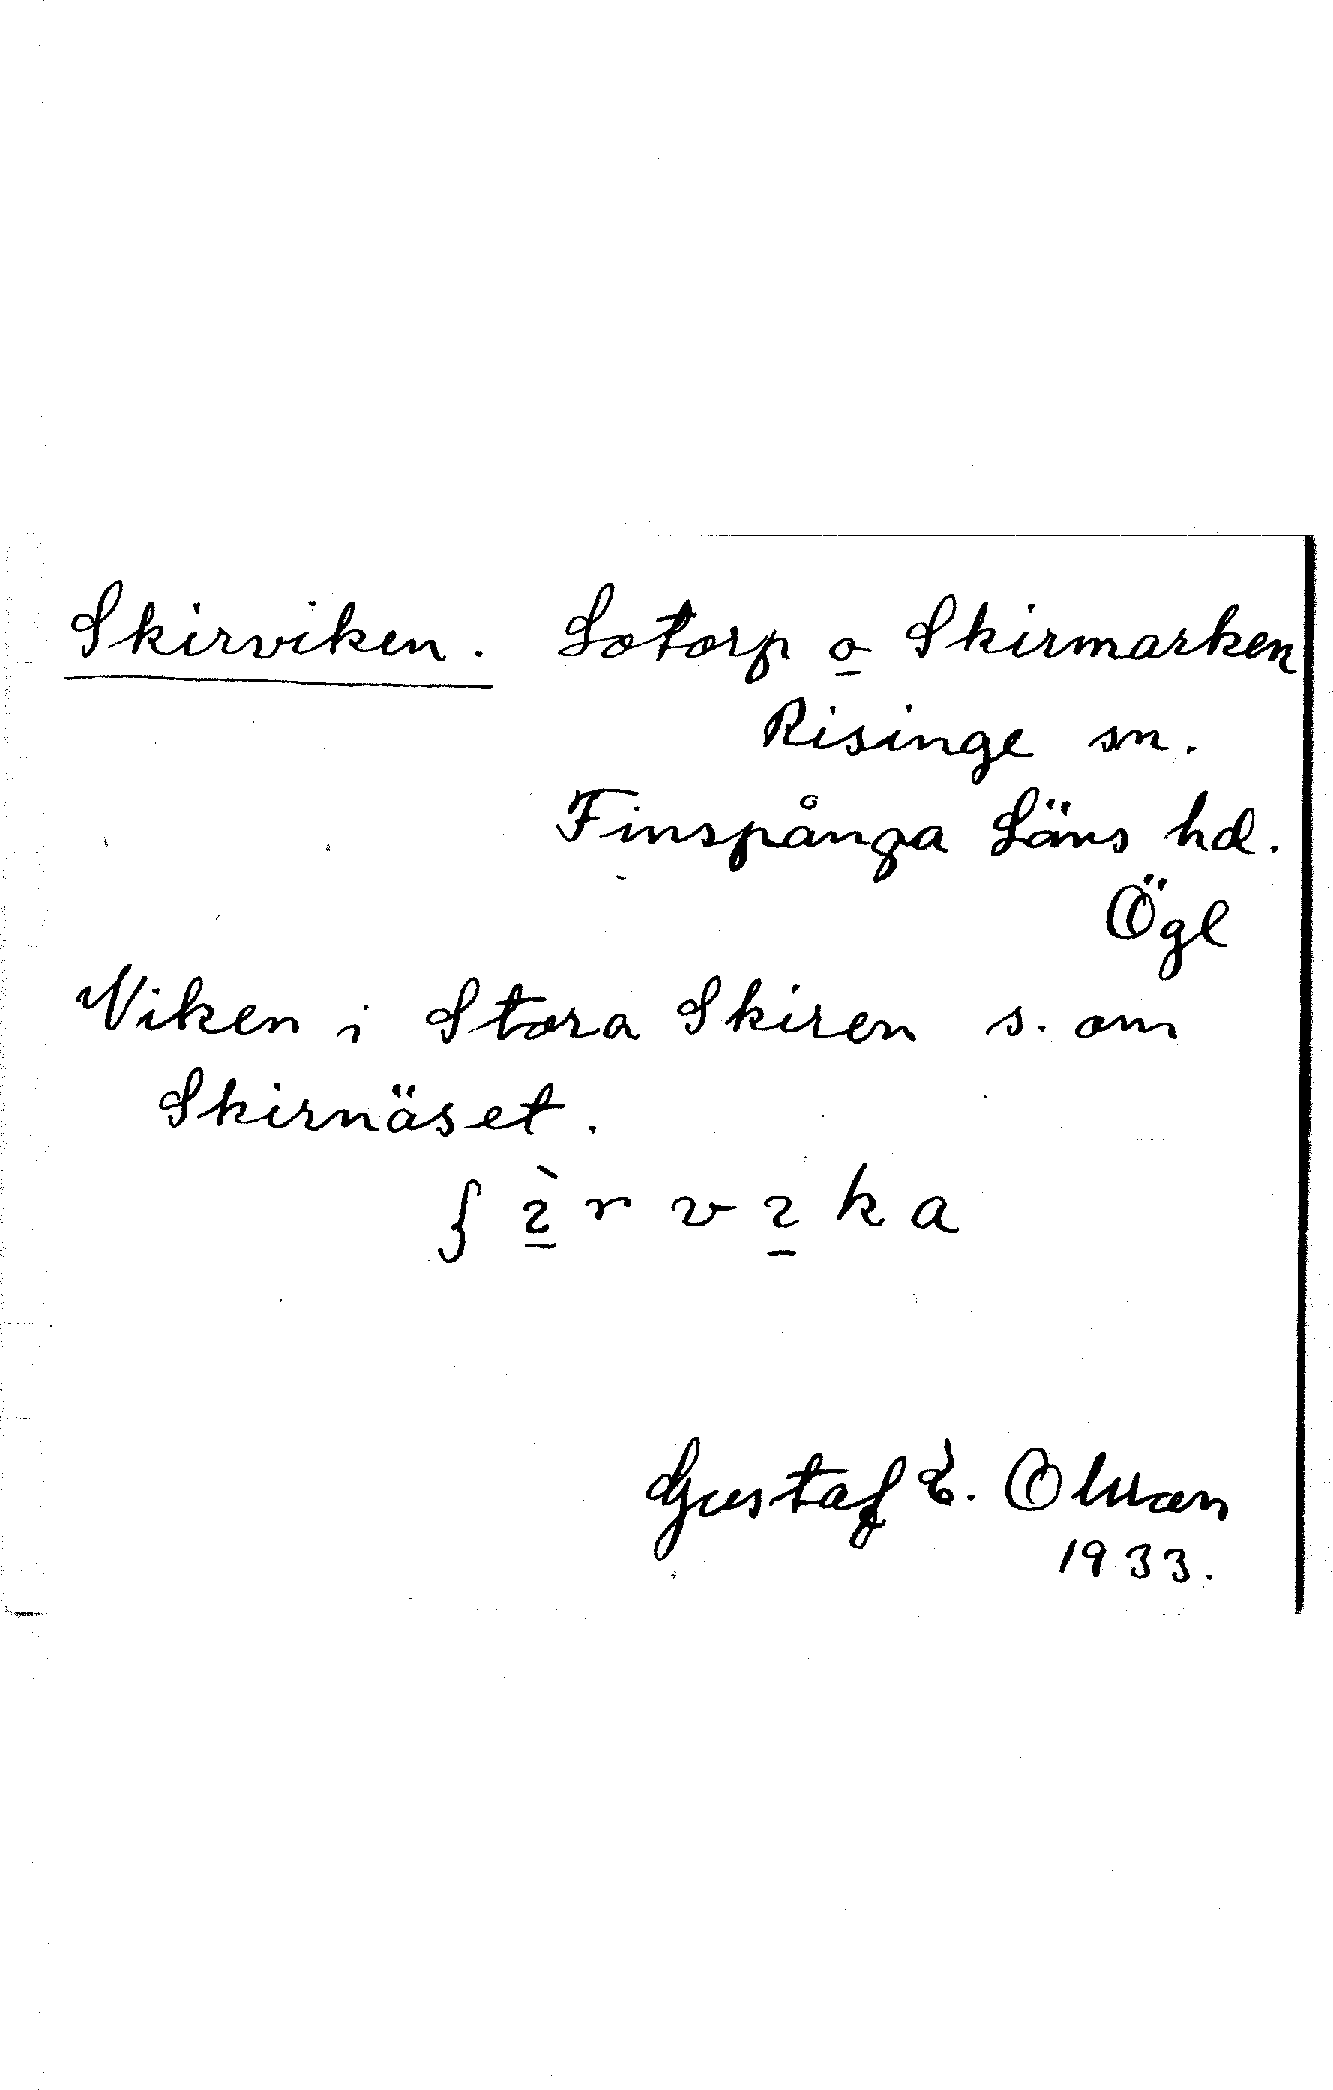 Skirviken. Lotorp o Skirmarken
Risinge sn.
Finspånga Läns hd.
Ögl
Viken i Stora Skiren s. om
Skirnäset.
ʃ ɿ̀ r v ɿ k a
Gustaf E. Olsson
1933.